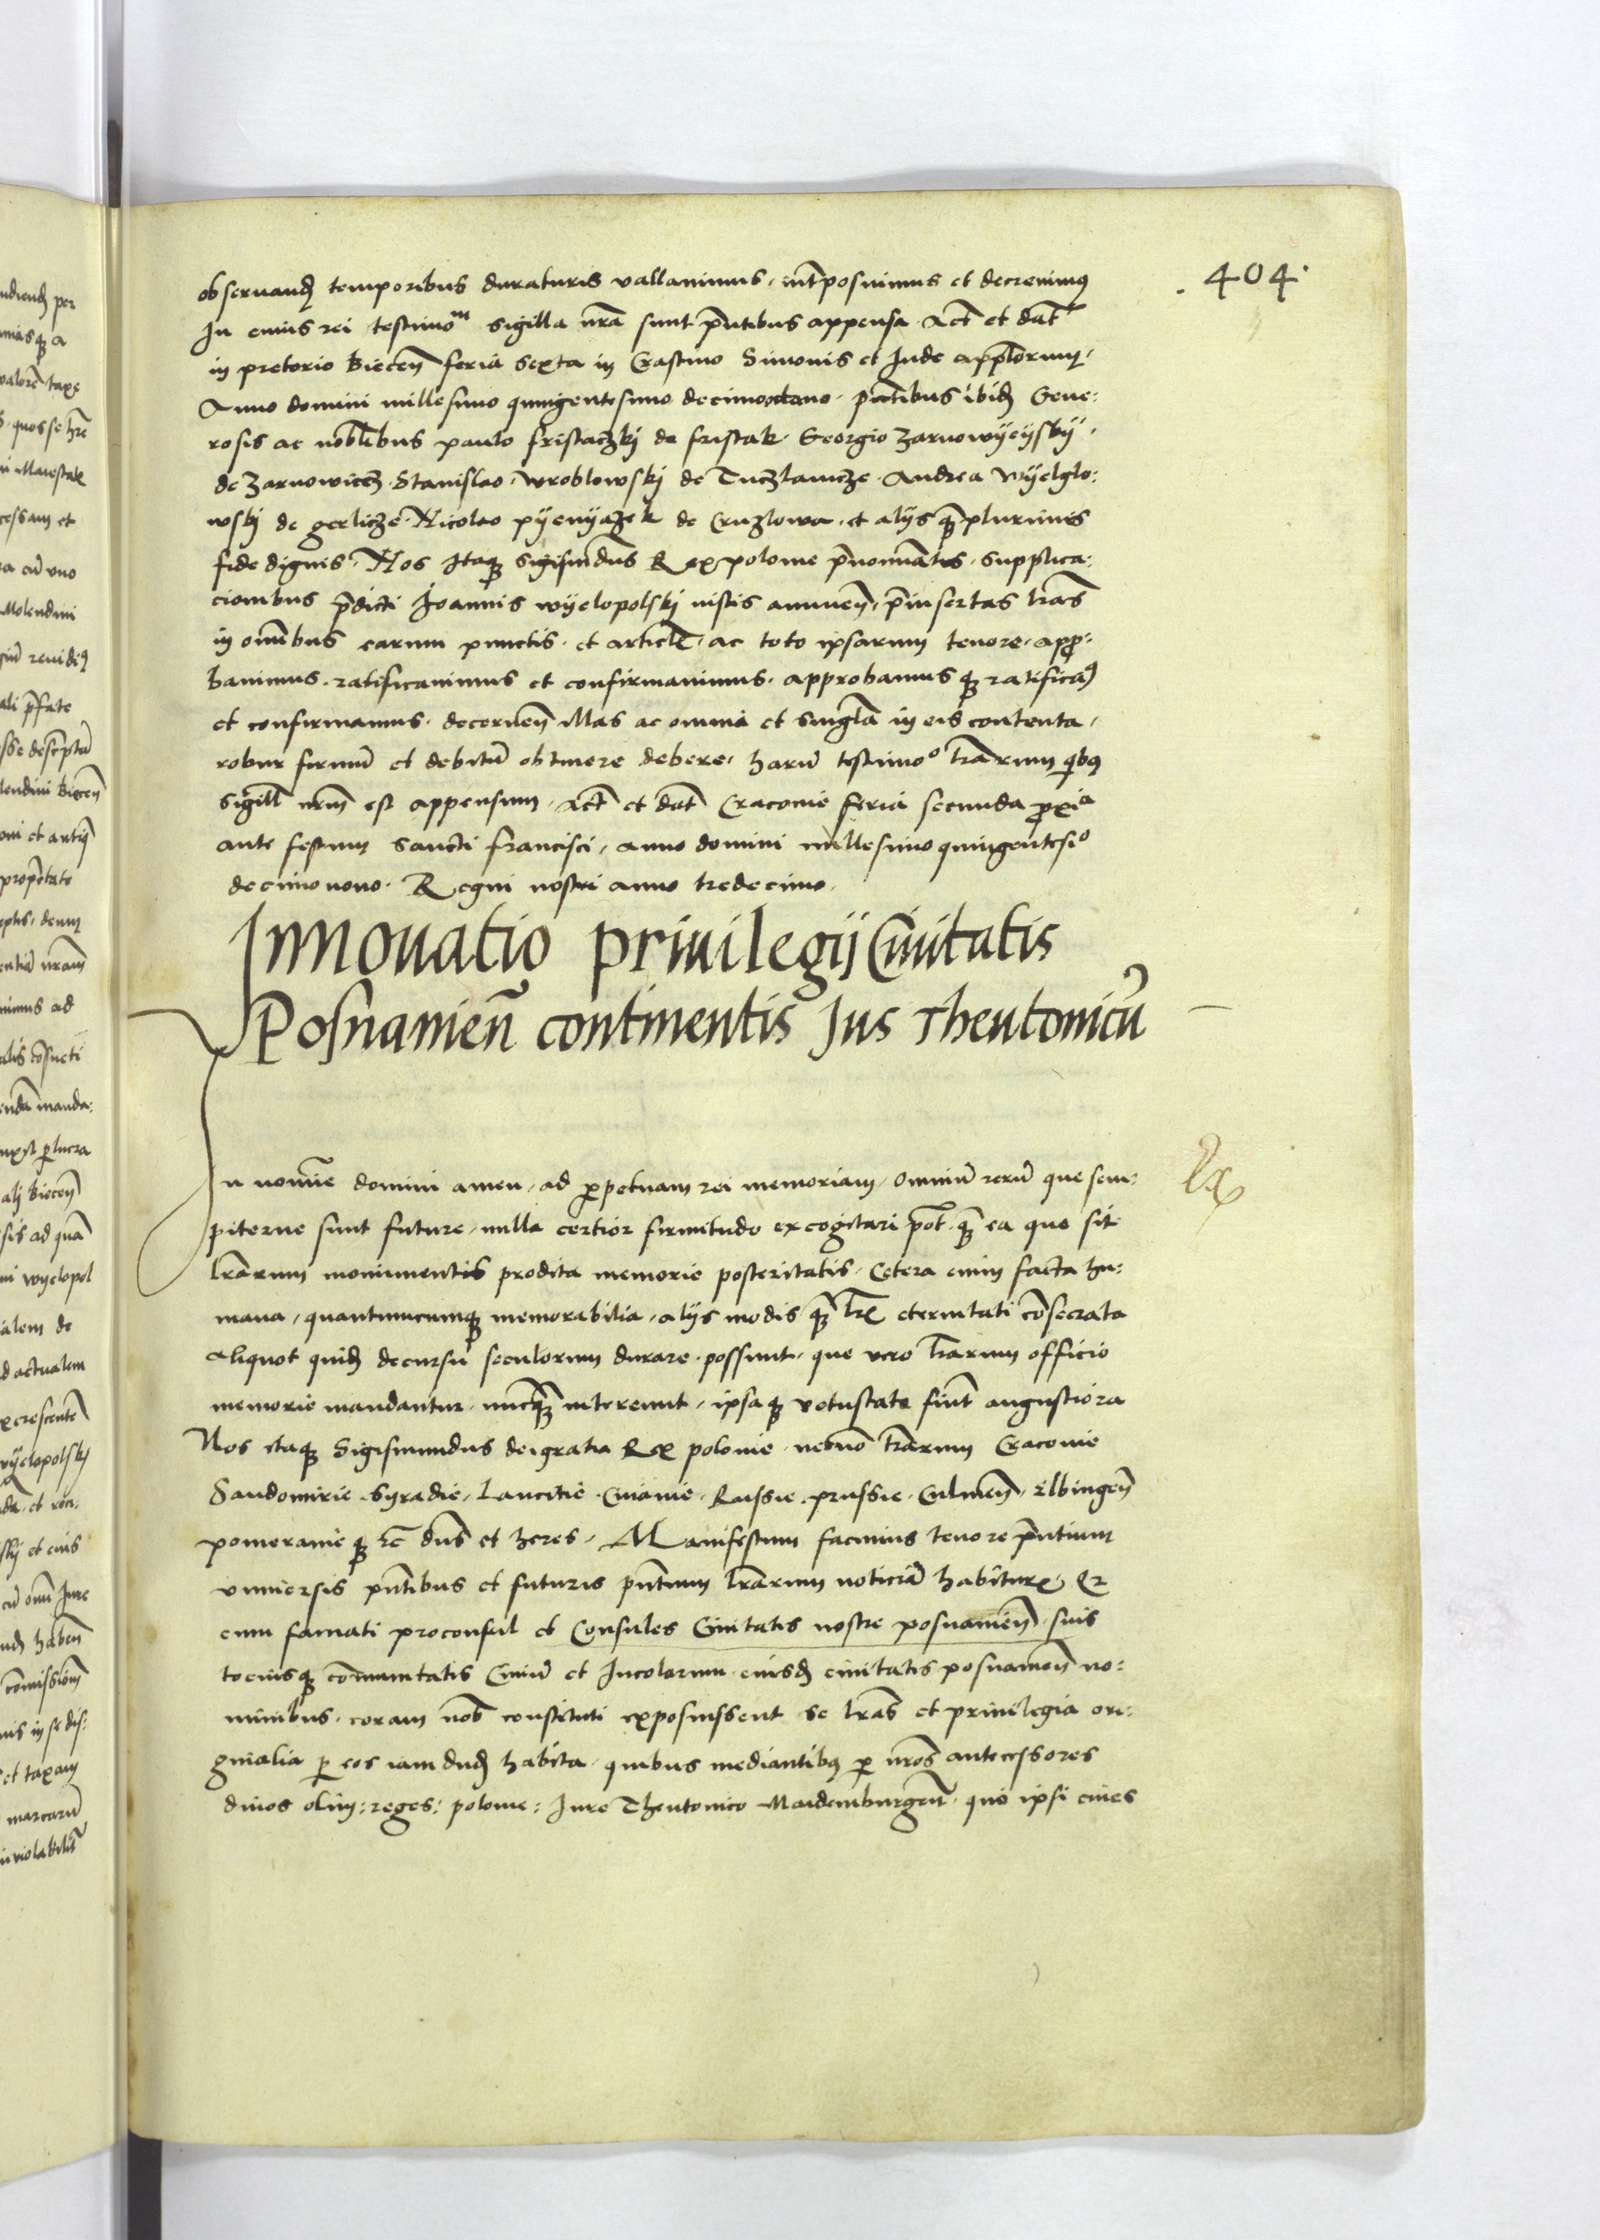 404
obseruand temporibus duraturis vallauimus, intposuimus et decreuimus
In cuius rei testimom sigilla nra sunt pntibus appensa. Act et dat
in pretorio Biecen feria sexta in Crastino Simonis et Jude applorum,
Anno domini millesimo quingentesimo decimooctauo. pntibus ibid Gene:
rosis ac noblibus paulo fristaczkj de fristak. Georgio Zarnowyeyskÿ.
de Zarnowiecz. Stanislao. Wroblowskj de Tuczlamcze. Andrea Wÿelglo:
wskj de gerlicze. Nicolao pÿenÿazek de Cruzlowa. et alÿs qzplurimis
fide dignis. Nos Itaqz Sigismdus Rex polonie pnominatis. supplica:
cionibus pdicti Joannis wÿelopolskj iustis annuen, pinsertas lras
in omibus earum punctis. et articl. ac toto ipsarum tenore. appro:
bauimus. ratificauimus et confirmauimus. approbamusqz ratificam
et confirmamus. decernen illas ac omnia et singla in eis contenta,
robur firmu et debitu obtinere debere. haru testimo lrarum qibus
sigill nrm est appensum. Act et dat Cracouie feria secunda proxia
ante festum sancti francisci, anno domini millesimo quingentesio
decimonono. Regni nostri anno tredecimo.
Innouatio priuilegij Ciuitatis
Posnanien continentis Jus Theutonicu
In nomie domini amen, ad perpetuam rei memoriam, omniu reru que sem:
piterne sunt future, nulla certior firmitudo excogitari pot. qz ea que sit
lrarum monumentis prodita memorie posteritatis. Cetera enim facta hu:
mana, quantumcumqz memorabilia, alÿs modis qz lre eternitati cosecrata
aliquot quid decursu seculorum durare possunt. que vero lrarum officio
memorie mandantur. nucqz intereunt, ipsaqz vetustate fiut augustiora
Nos itaqz Sigismundus dei gratia Rex polonie. necno trarum Cracouie
Sandomirie. Syradie, Lancitie. Cuiauie. Russie. prussie. Culmen. Elbingen
pomeranieqz &c dns et heres, Manifestum facimus tenore pntium
vniuersis pntibus et futuris pntium lrarum noticia habiture. Qz
cum famati proconsul et Consules Ciuitatis nostre posnanien. suis
tociusqz comunitatis Ciuiu et Incolarum eiusd ciuitatis posnanien no:
minibus. coram nob constituti exposuissent se lras et priuilegia ori:
ginalia p eos iam dud habita. quibus mediantibus p nros antecessores
diuos olim: reges: polonie: Jure Theutonico Maidemburgen. quo ipsi ciues